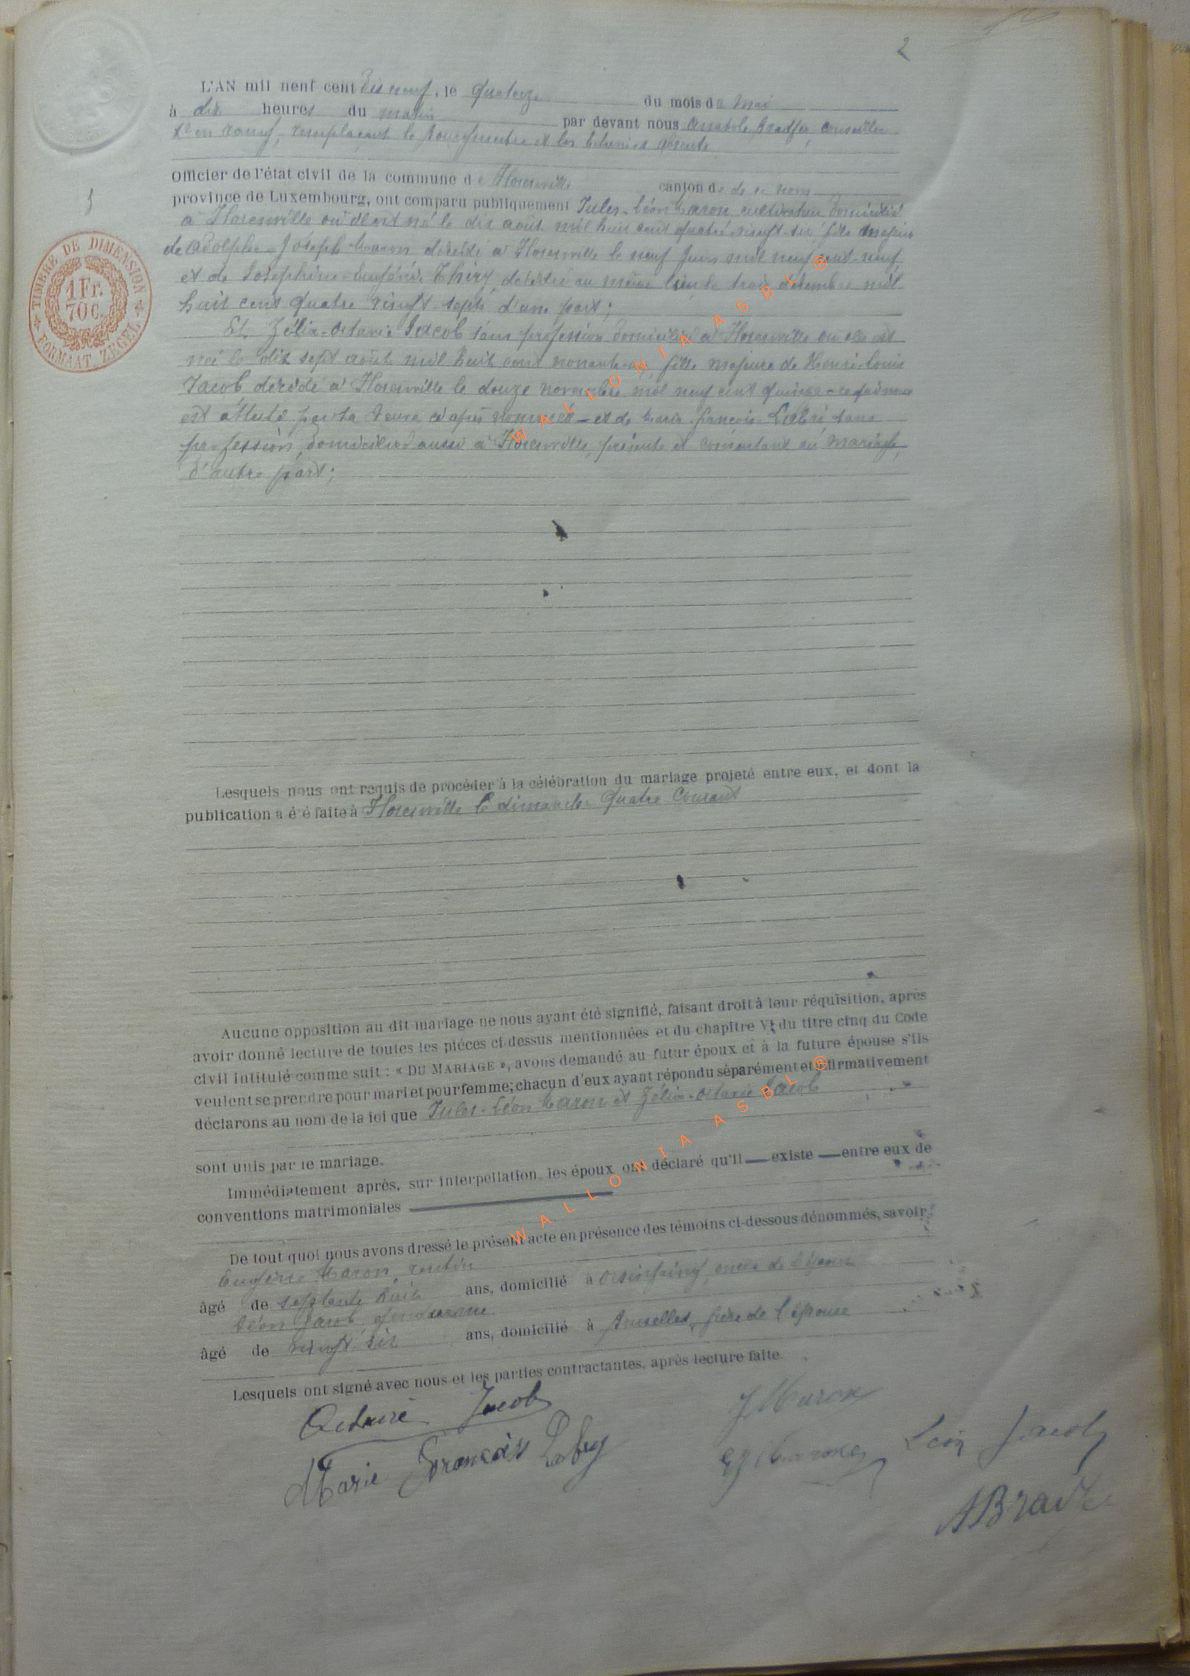 2
L'AN mil neuf cent dix neuf, le quatorze du mois de mai
à dix heures du matin par devant nous Anatole Bradfer, conseiller
remplaçant le bourgmestre et les échevins absents
Officier de l'état civil de la commune de Florenville canton de
province de Luxembourg, ont comparu publiquement Jules-Léon Maron cultivateur domicilié
à Florenville où il est né le dix août mil huit cent quatre-vingt-six fils majeur
de Adolphe-Joseph Maron décédé à Florenville le neuf juin mil neuf cent neuf
et de Joséphine-Eugénie Thiry, décédée au même lieu le trois décembre mil
huit cent quatre vingt-sept, d'une part;
Et Zélia-Octavie Jacob sans profession domiciliée à Florenville où elle est
née le dix sept août mil huit cent nonante, fille majeure de Henri-Louis
Jacob décédé à Florenville le douze novembre mil neuf cent quinze
est attesté par la ci après nommée - et de Marie-François Labri, sans
profession, domiciliée aussi à Florenville, présente et consentant au mariage,
d'autre part;
TIMBRE DE DIMENSION
1 Fr.
70 C.
FORMAAT ZEGEL
Lesquels nous ont requis de procéder à la célébration du mariage projeté entre eux, et dont la
publication a été faite à Florenville le dimanche quatre courant
Aucune opposition au dit mariage ne nous ayant été signifié, faisant droit à leur réquisition, après
avoir donné lecture de toutes les pièces ci-dessus mentionnées et du chapitre VI du titre cinq du Code
civil intitulé comme suit : « DU MARIAGE », avons demandé au futur époux et à la future épouse s'ils
veulent se prendre pour mari et pour femme; chacun d'eux ayant répondu séparément et affirmativement
déclarons au nom de la loi que Jules-Léon Maron et Zélia-Octavie Jacob
sont unis par le mariage.
Immédiatement après, sur interpellation, les époux ont déclaré qu'il — existe — entre eux de
conventions matrimoniales
De tout quoi nous avons dressé le présent acte en présence des témoins ci-dessous dénommés, savoir
Eugène Maron, rentier
âgé de septante huit ans, domicilié à oncle de l'époux
Léon Jacob, gendarme
âgé de vingt six ans, domicilié à Bruxelles, frère de l'épouse
Lesquels ont signé avec nous et les parties contractantes, après lecture faite.
Octavie Jacob
J Maron
Marie François Labry
Eg Maron
Léon Jacob
ABradf
WALLONIA ASBL ®
WALLONIA ASBL ®